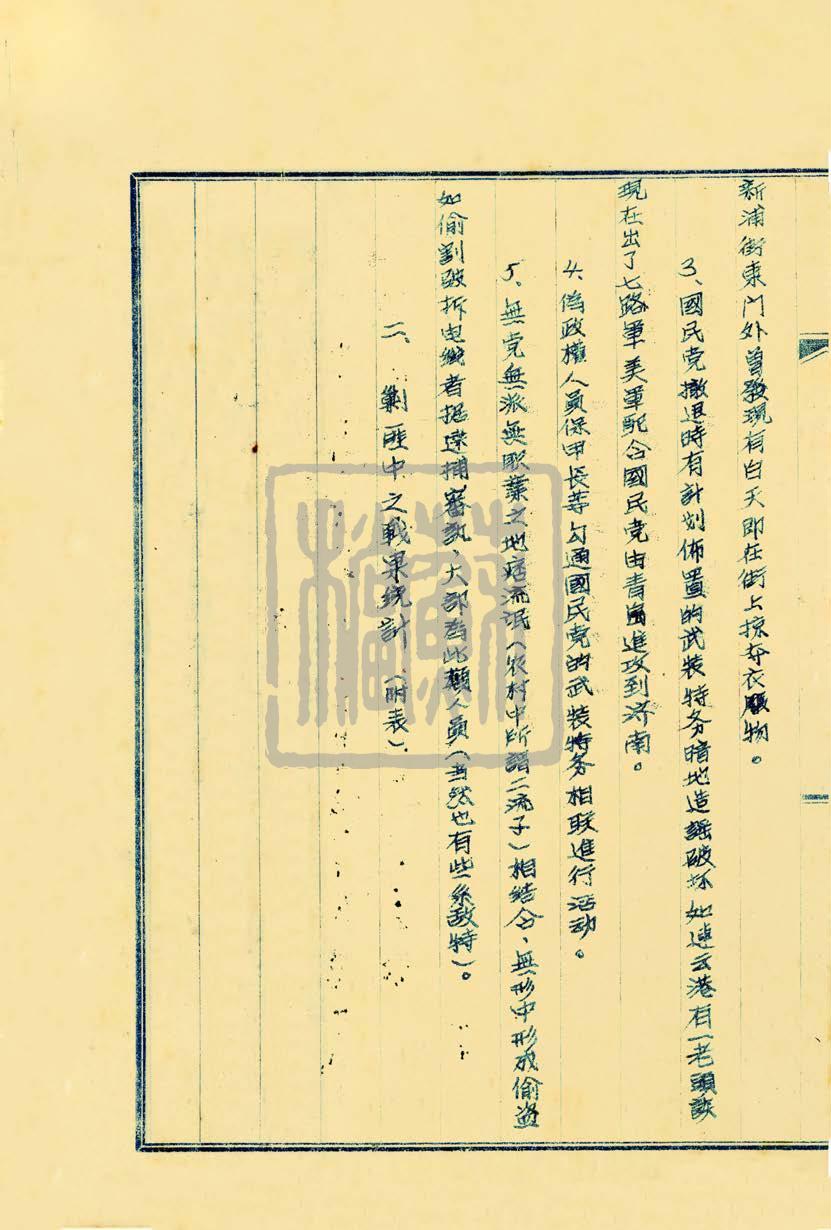 新浦街東門外曾發現有白天即在街上掠夺衣服物。
3、國民党撤退時有計划佈置的武装特务暗地造謡破坏如連云港有一老頭談
現在出了七路軍美軍配合國民党由青島進攻到济南。
4、偽政權人員保甲長等勾通國民党的武装特务相联進行活动。
5、無党無派無职業之地痞流氓(农村中所謂二流子)相结合、無形中形成偷盗
如偷割破拆电线者据逮捕審訊、大部為此類人員(当然也有些系敌特)。
二、剿匪中之戰果統計(附表)